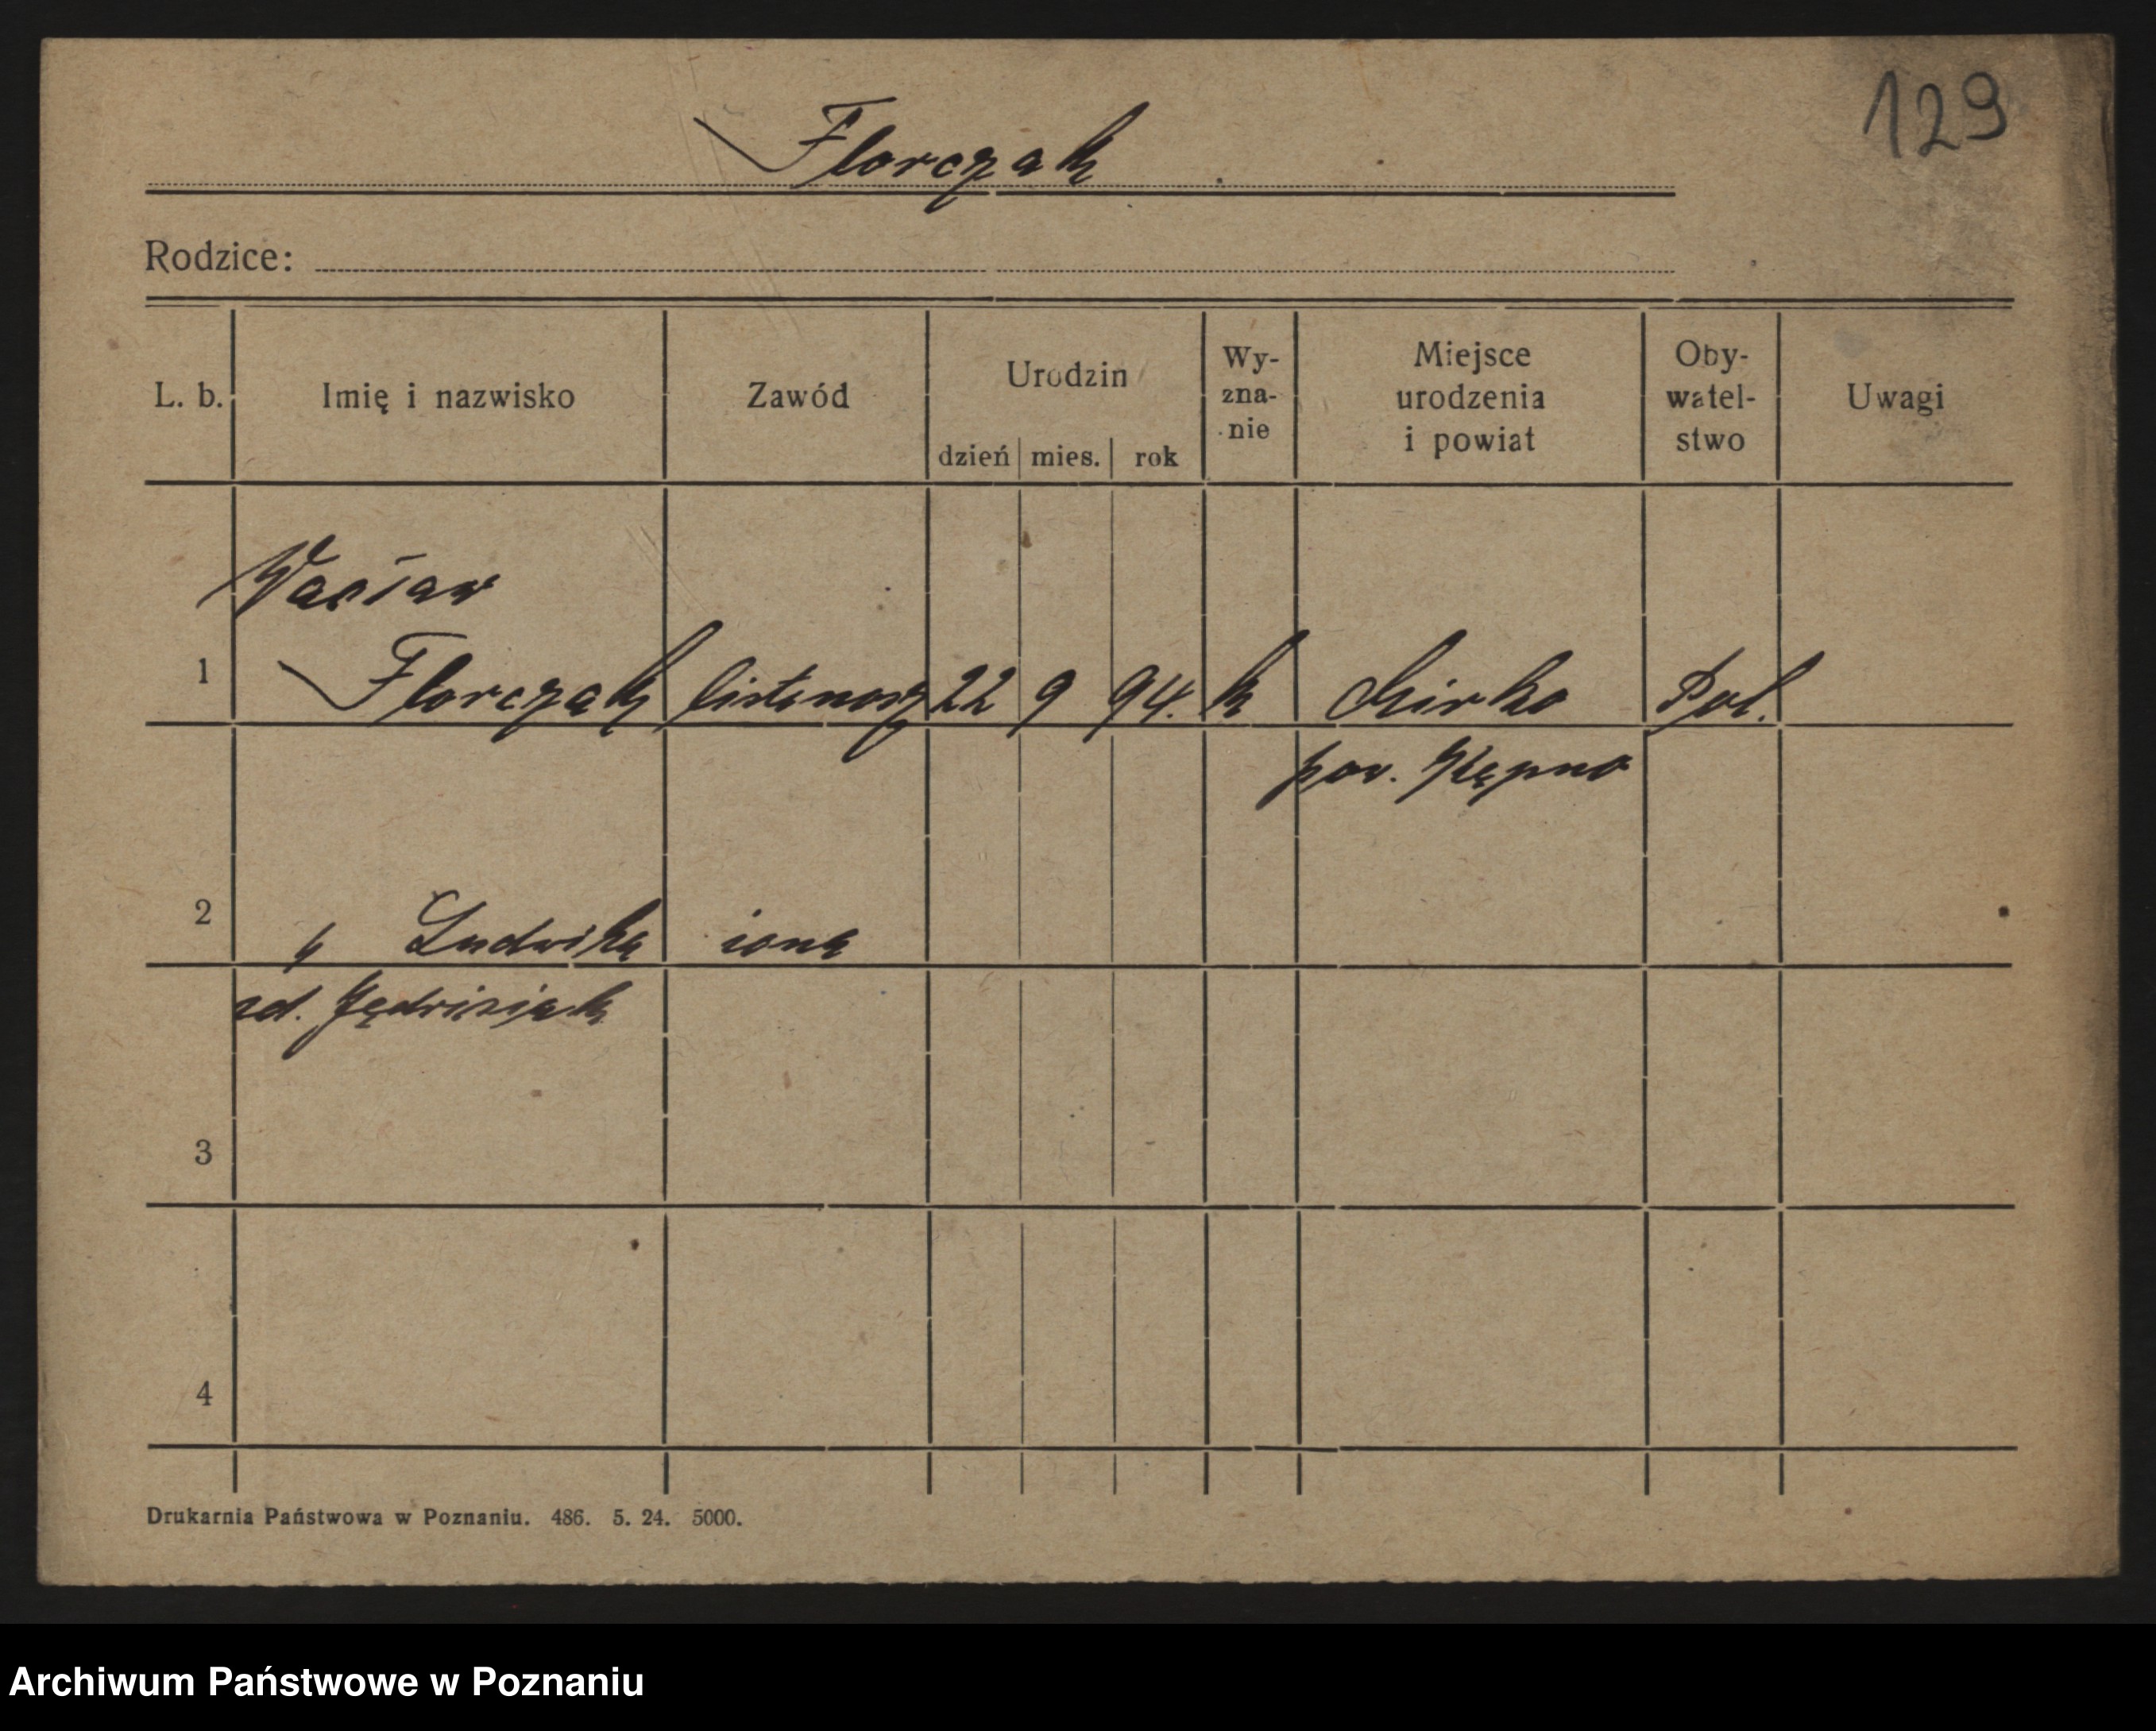 129
Florczak
Rodzice:
L. b. Imię i nazwisko Zawód Urodzin dzień mies. rok Wy-zna-nie Miejsce urodzenia i powiat Oby-watel-stwo Uwagi
Wacław
1 Florczak listonosz 22 9 94. k Pol.
pow. Kępno
2 " Ludwika żona
zd.
3
4
Drukarnia Państwowa w Poznaniu. 486. 5. 24. 5000.
Archiwum Państwowe w Poznaniu